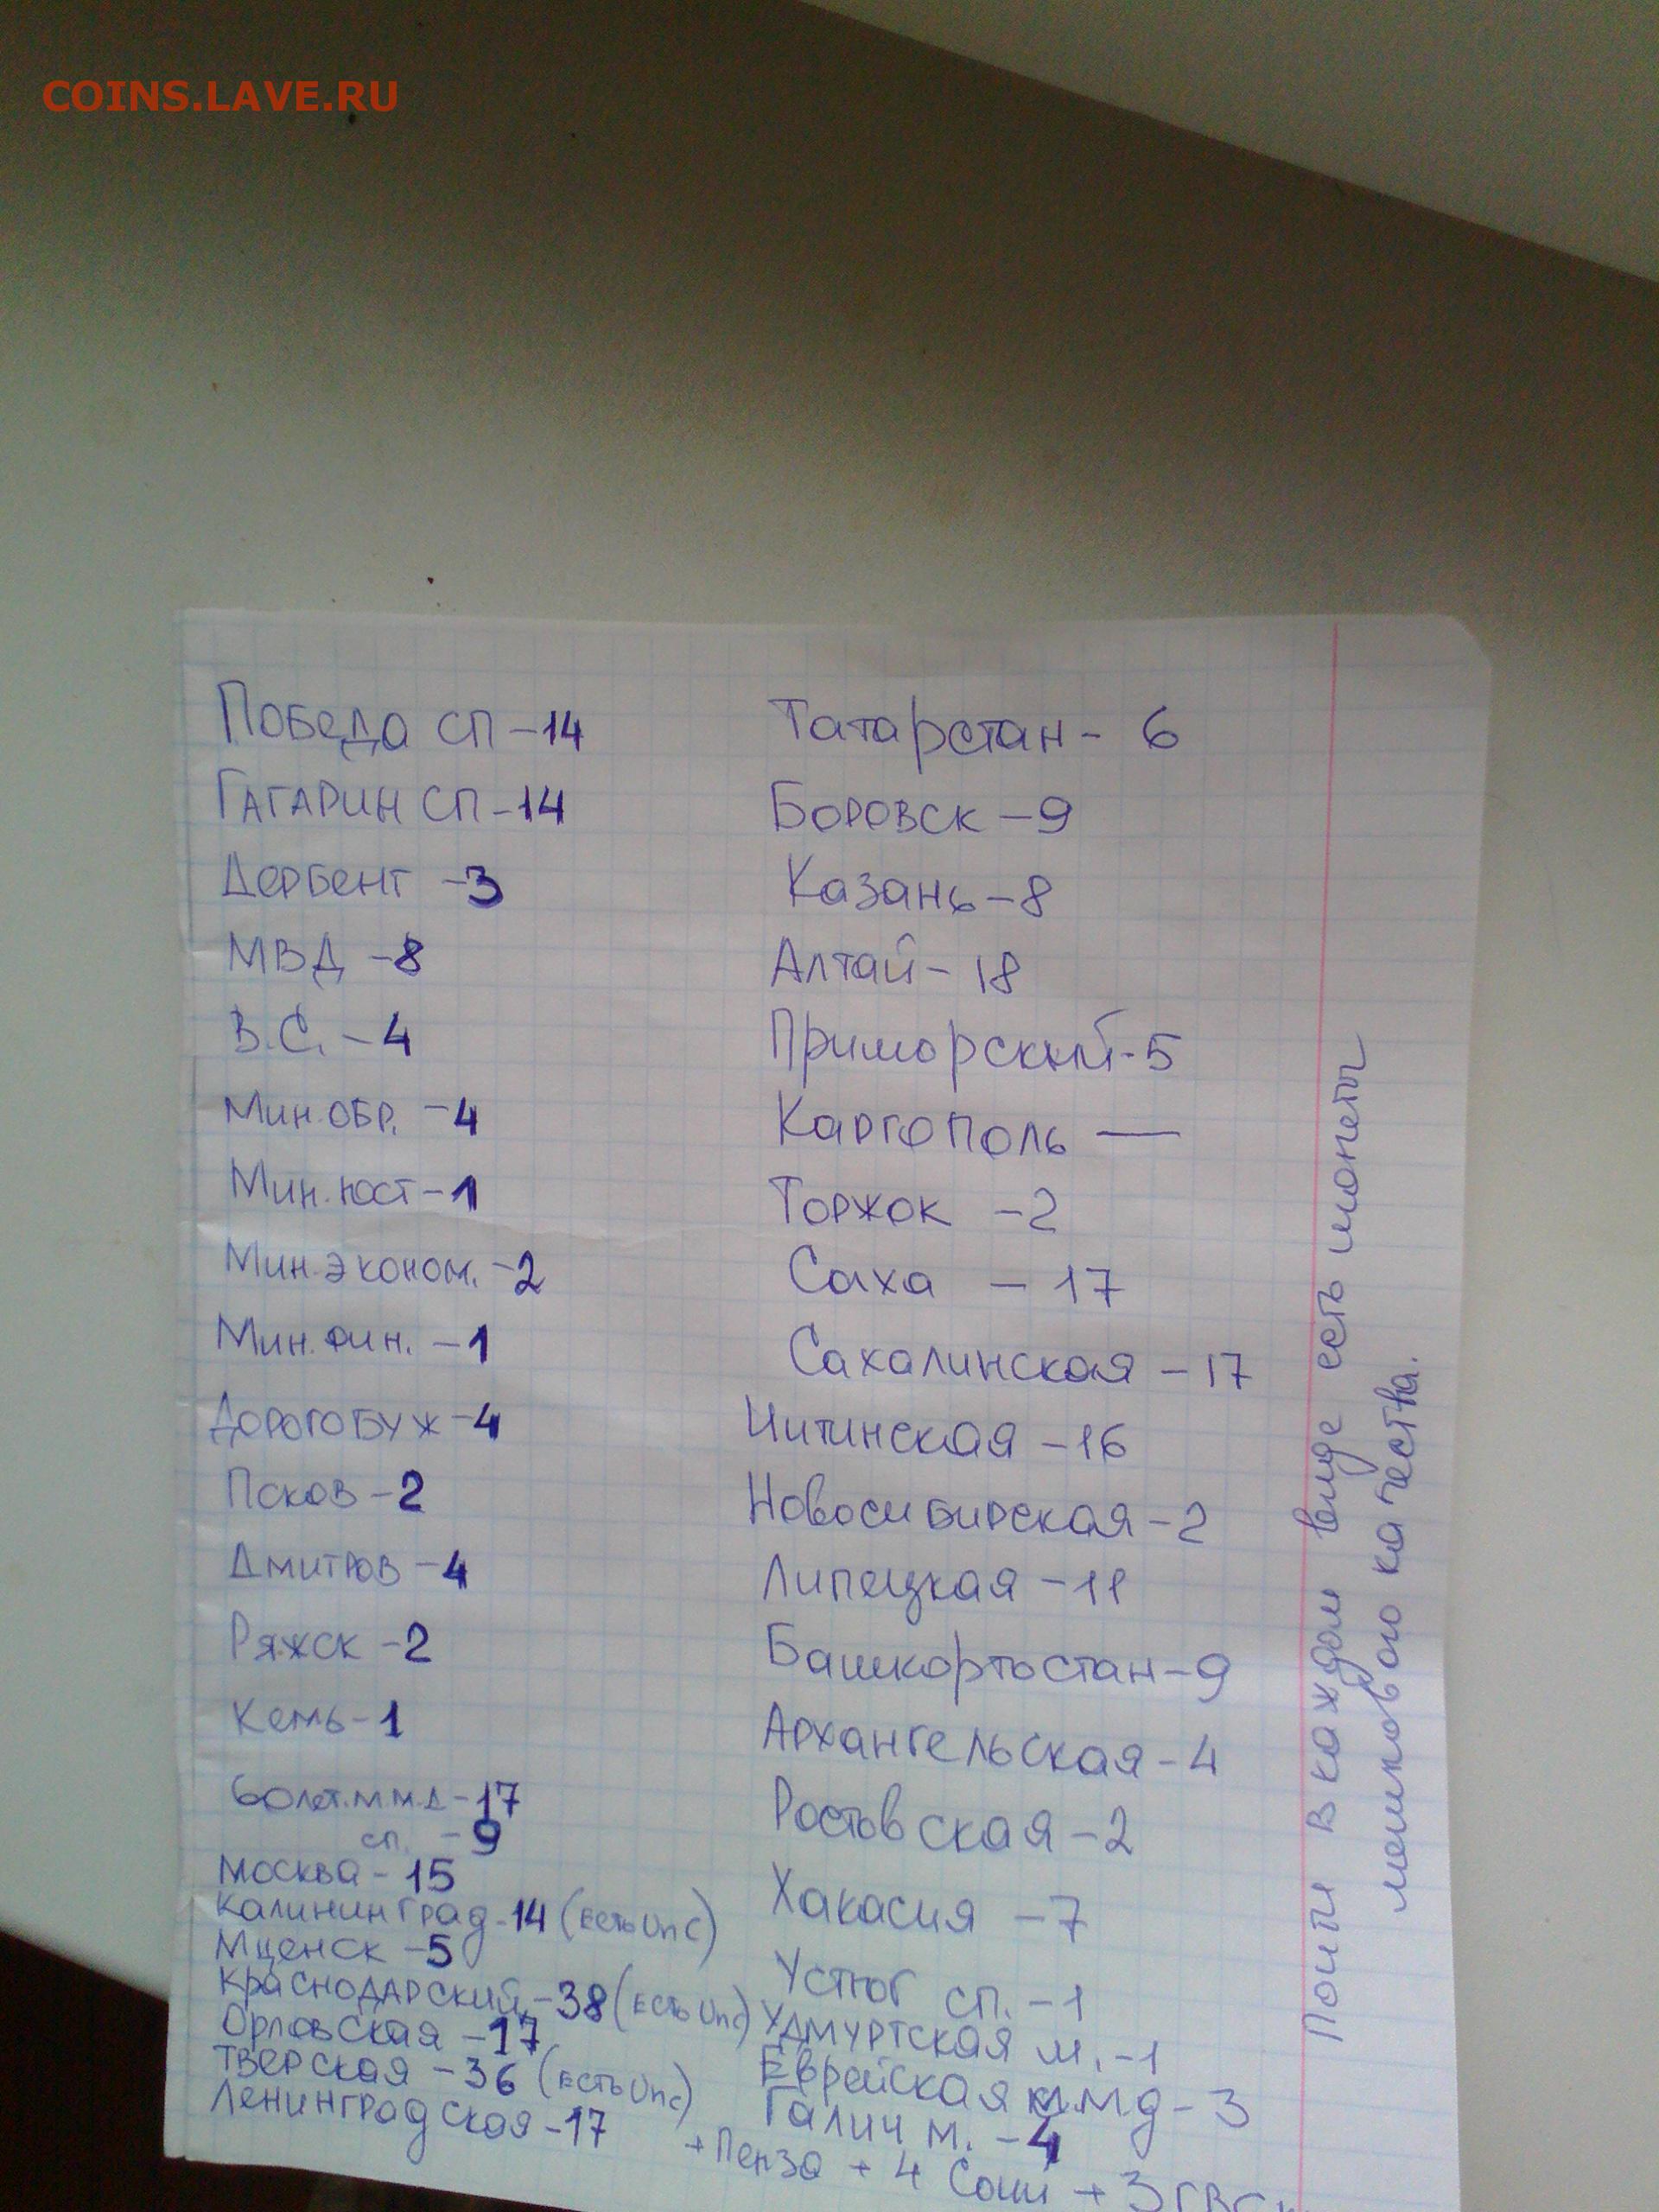 COINS.LAVE.RU
Победа СП - 14
Гагарин СП - 14
Дербент - 3
МВД - 8
В.С. - 4
Мин.обр. - 4
Мин.юст - 1
Мин.эконом. - 2
Мин.фин. - 1
Дорогобуж - 4
Псков - 2
Дмитров - 4
Ряжск - 2
Кемь - 1
60лет.ммд - 17
сп. - 9
Москва - 15
Калининград - 14 (есть Unc)
Мценск - 5
Краснодарский - 38 (есть Unc)
Орловская - 17
Тверская - 36 (есть Unc)
Ленинградская - 17
Татарстан - 6
Боровск - 9
Казань - 8
Алтай - 18
Приморский - 5
Каргополь —
Торжок - 2
Саха - 17
Сахалинская - 17
Читинская - 16
Новосибирская - 2
Липецкая - 11
Башкортостан - 9
Архангельская - 4
Ростовская - 2
Хакасия - 7
Устюг сп. - 1
Удмуртская м. - 1
Еврейская ммд - 3
Галич м. - 4
+ Пенза + 4 Сочи + 3 ГВС
Почти в каждом виде есть монеты
мешкового качества.